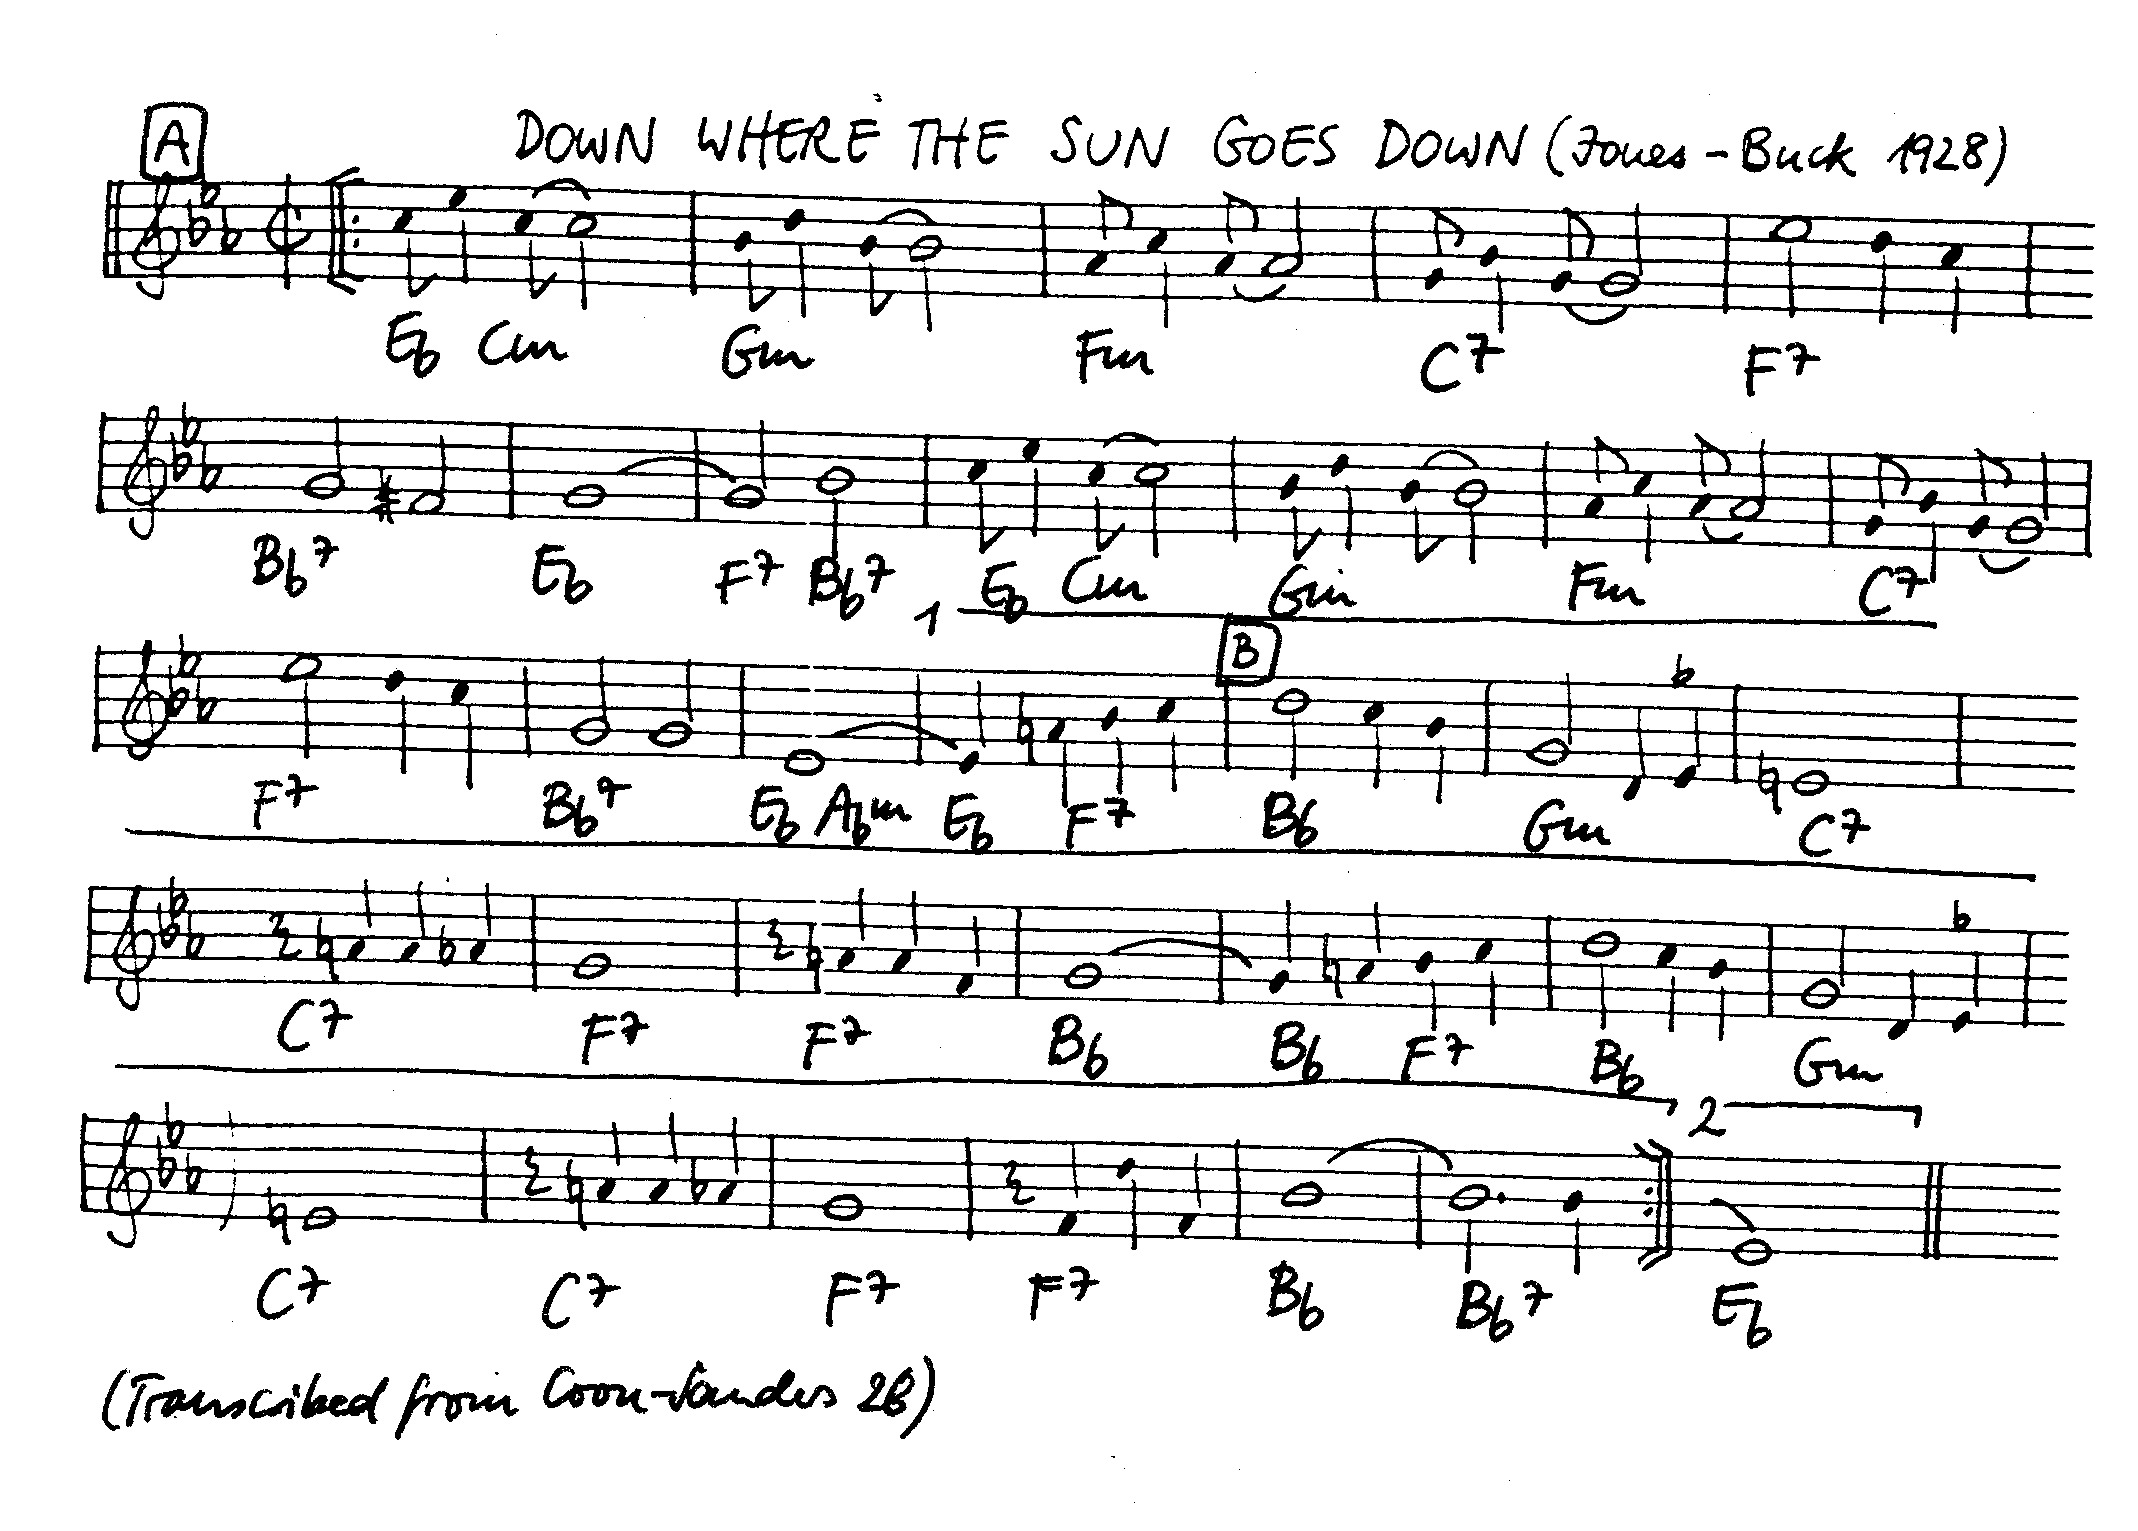 A
DOWN WHERE THE SUN GOES DOWN (Jones - Buck 1928)
Eb Cm Gm Fm C7 F7
Bb7 Eb F7 Bb7 Eb Cm Gm Fm C7
1
B
F7 Bb7 Eb Abm Eb F7 Bb Gm C7
C7 F7 F7 Bb Bb F7 Bb Gm
2
C7 C7 F7 F7 Bb Bb7 Eb
(Transcribed from Coon-Sanders 2B)